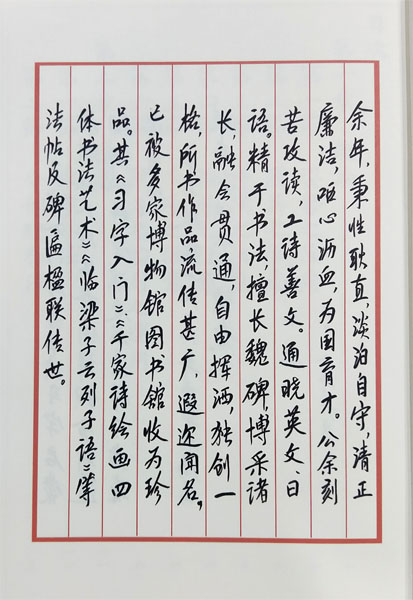 余年，秉性耿直，淡泊自守，清正
廉洁，呕心沥血，为国育才。公余刻
苦攻读，工诗善文。通晓英文、日
语。精于书法擅长魏碑，博采诸
长，融会贯通，自由挥洒，独创一
格，所书作品流传甚广，遐迩闻名，
已被多家博物馆图书馆收为珍
品。其《习字入门》、《千家诗绘画四
体书法艺术》《临梁子云列子语》等
法帖及碑匾楹联传世。